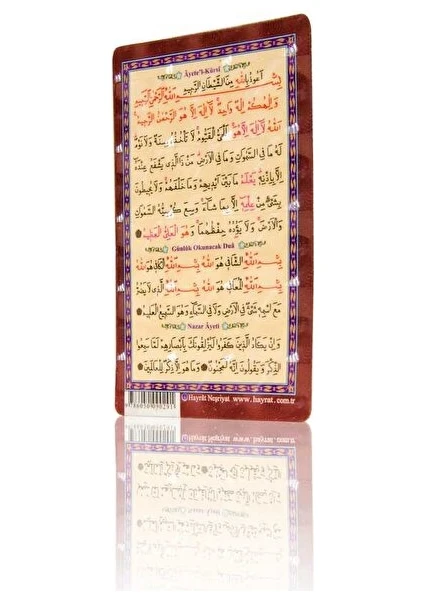 Âyete'l-Kürsî
اَعُوذُ بِاللّٰهِ مِنَ الشَّيْطَانِ الرَّجِيمِ
بِسْمِ اللّٰهِ الرَّحْمٰنِ الرَّحِيمِ
وَاِلٰهُكُمْ اِلٰهٌ وَاحِدٌ لَٓا اِلٰهَ اِلَّا هُوَ الرَّحْمٰنُ الرَّحِيمُ
اَللّٰهُ لَٓا اِلٰهَ اِلَّا هُوَ اَلْحَيُّ الْقَيُّومُ لَا تَاْخُذُهُ سِنَةٌ وَلَا نَوْمٌ
لَهُ مَا فِي السَّمٰوَاتِ وَمَا فِي الْاَرْضِ مَنْ ذَا الَّذِي يَشْفَعُ عِنْدَهُ
اِلَّا بِاِذْنِهِ يَعْلَمُ مَا بَيْنَ اَيْدِيهِمْ وَمَا خَلْفَهُمْ وَلَا يُحِيطُونَ
بِشَيْءٍ مِنْ عِلْمِهِ اِلَّا بِمَا شَٓاءَ وَسِعَ كُرْسِيُّهُ السَّمٰوَاتِ
وَالْاَرْضَ وَلَا يَؤُدُهُ حِفْظُهُمَا وَهُوَ الْعَلِيُّ الْعَظِيمُ
Günlük Okunacak Duâ
بِسْمِ اللّٰهِ الشَّافِي هُوَ اللّٰهُ بِسْمِ اللّٰهِ الْكَافِي هُوَ اللّٰهُ
بِسْمِ اللّٰهِ الْمُعَافِي هُوَ اللّٰهُ بِسْمِ اللّٰهِ الَّذِي لَا يَضُرُّ
مَعَ اسْمِهِ شَيْءٌ فِي الْاَرْضِ وَلَا فِي السَّمَٓاءِ وَهُوَ السَّمِيعُ الْعَلِيمُ
Nazar Âyeti
وَاِنْ يَكَادُ الَّذِينَ كَفَرُوا لَيُزْلِقُونَكَ بِاَبْصَارِهِمْ لَمَّا سَمِعُوا
الذِّكْرَ وَيَقُولُونَ اِنَّهُ لَمَجْنُونٌ وَمَا هُوَ اِلَّا ذِكْرٌ لِلْعَالَمِينَ
Hayrât Neşriyat www.hayrat.com.tr